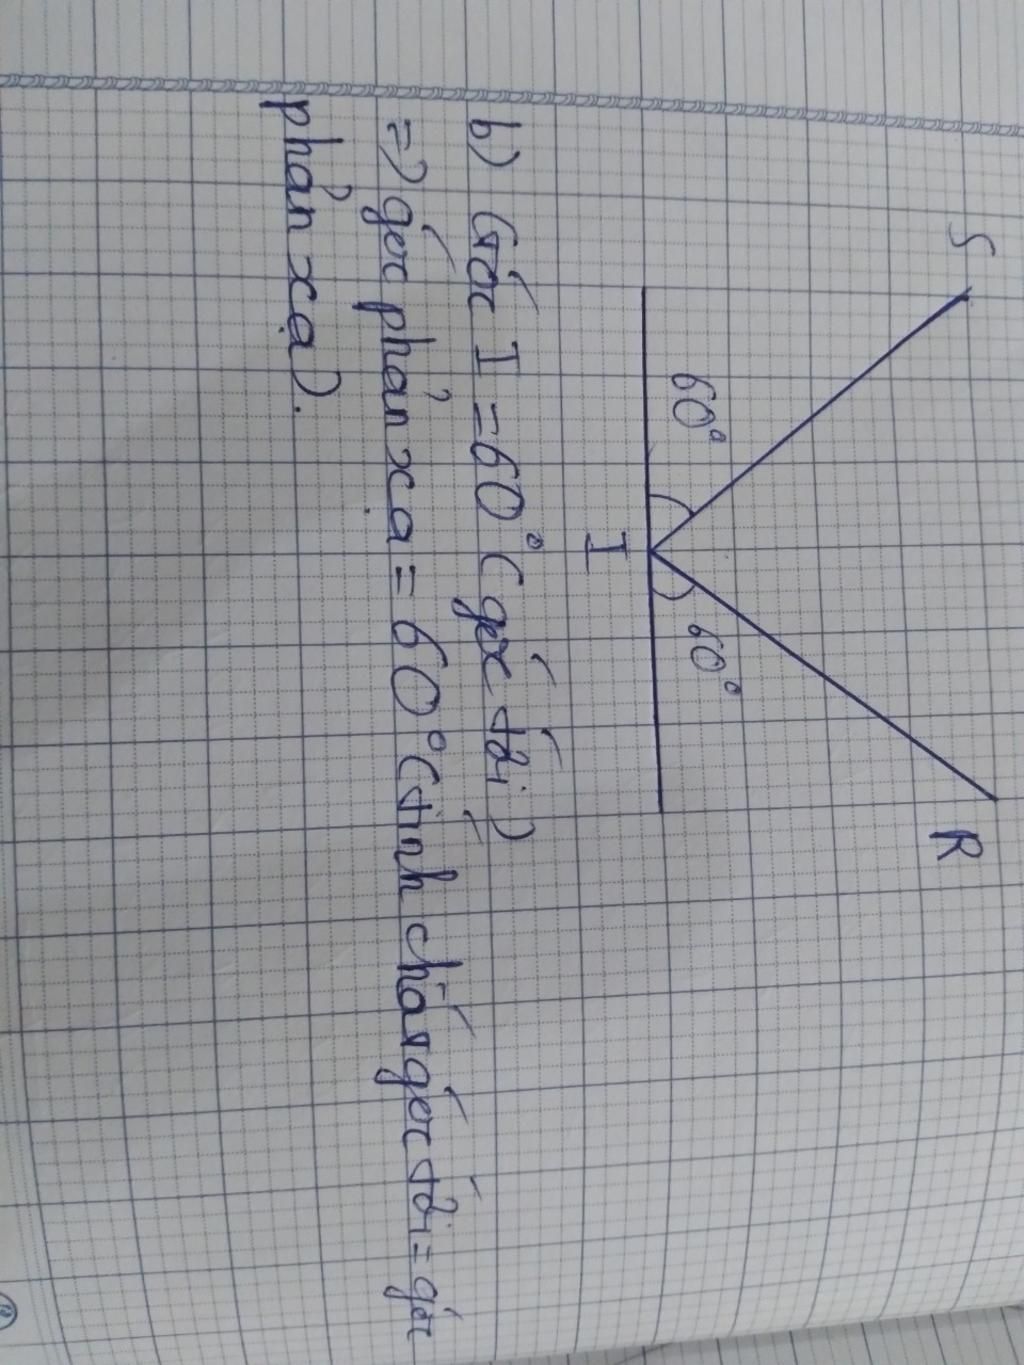 S
R
60°
60°
I
b) Góc I = 60° (góc tới)
=> góc phản xạ = 60° (tính chất góc tới = góc
phản xạ).